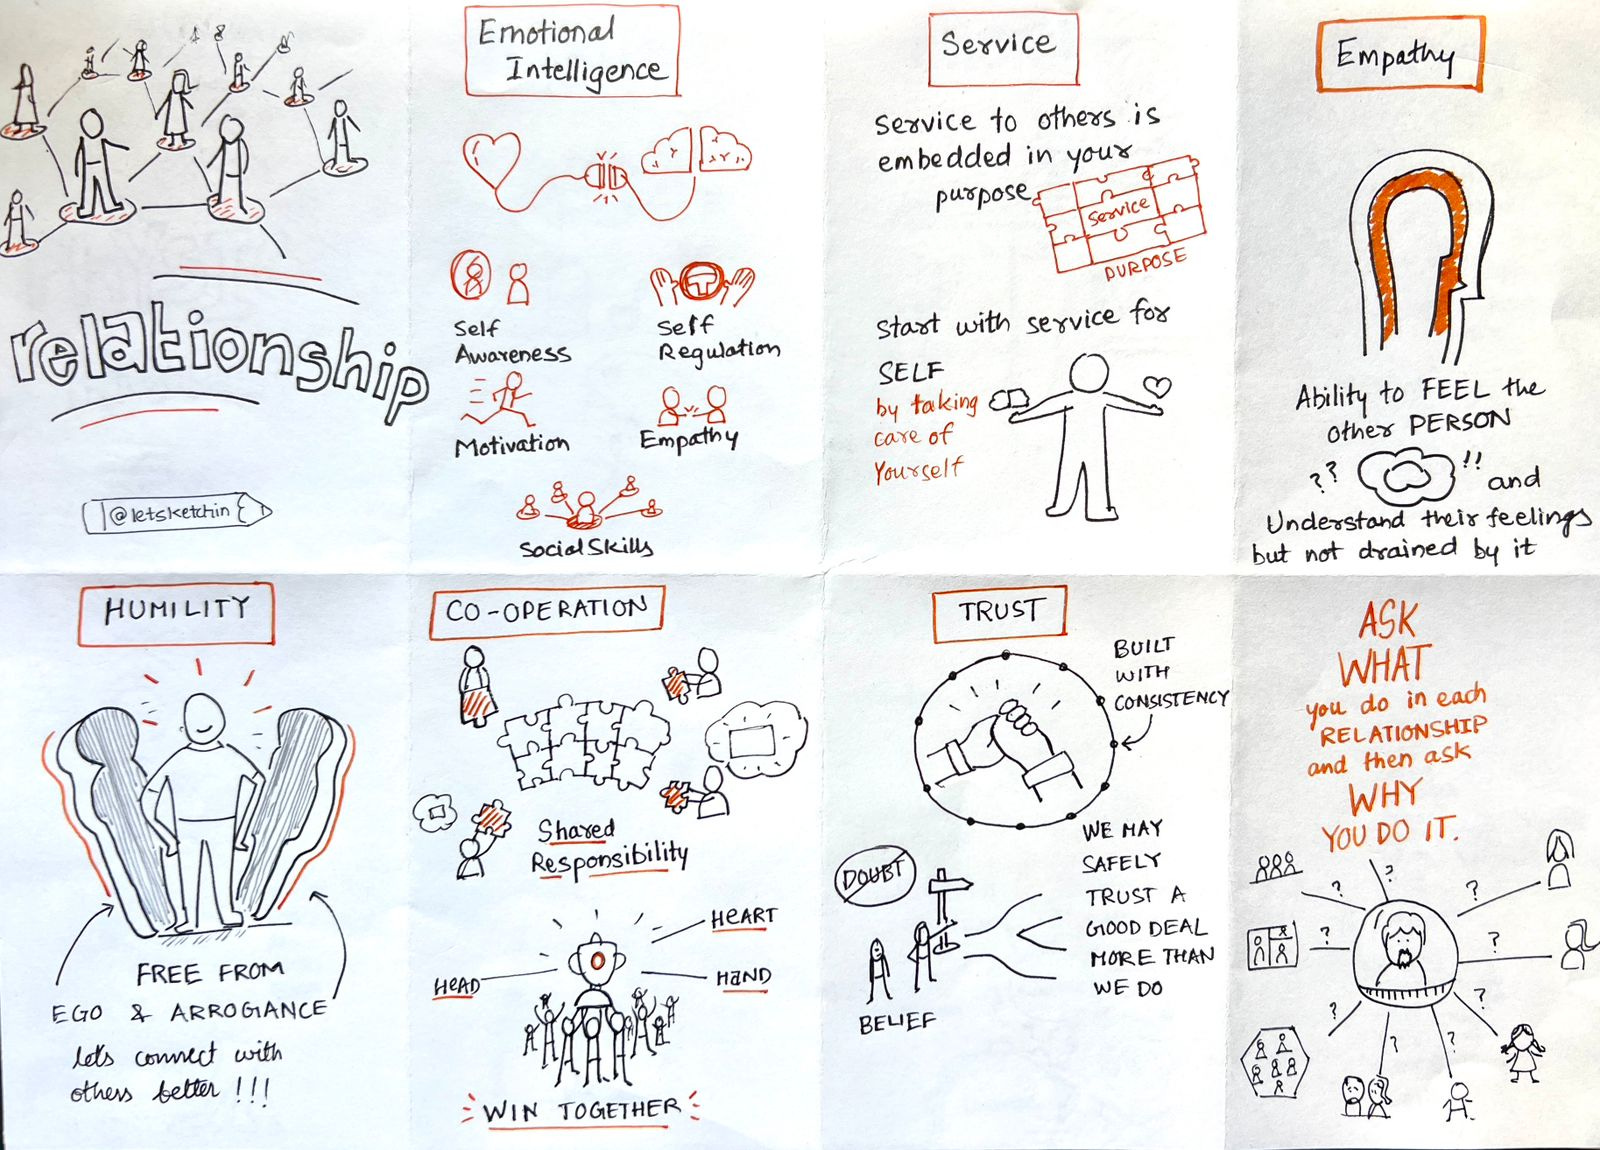 relationship
@letsketchin
Emotional
Intelligence
Self
Awareness
Self
Regulation
Motivation
Empathy
Social Skills
Service
Service to others is
embedded in your
purpose
Service
PURPOSE
Start with service for
SELF
by taking
care of
Yourself
Empathy
Ability to FEEL the
other PERSON
?? !! and
Understand their feelings
but not drained by it
HUMILITY
FREE FROM
EGO & ARROGANCE
lets connect with
others better !!!
CO-OPERATION
Shared
Responsibility
HEART
HEAD
HAND
WIN TOGETHER
TRUST
BUILT
WITH
CONSISTENCY
DOUBT
BELIEF
WE MAY
SAFELY
TRUST A
GOOD DEAL
MORE THAN
WE DO
ASK
WHAT
you do in each
RELATIONSHIP
and then ask
WHY
YOU DO IT.
? ? ?
? ?
? ? ? ?